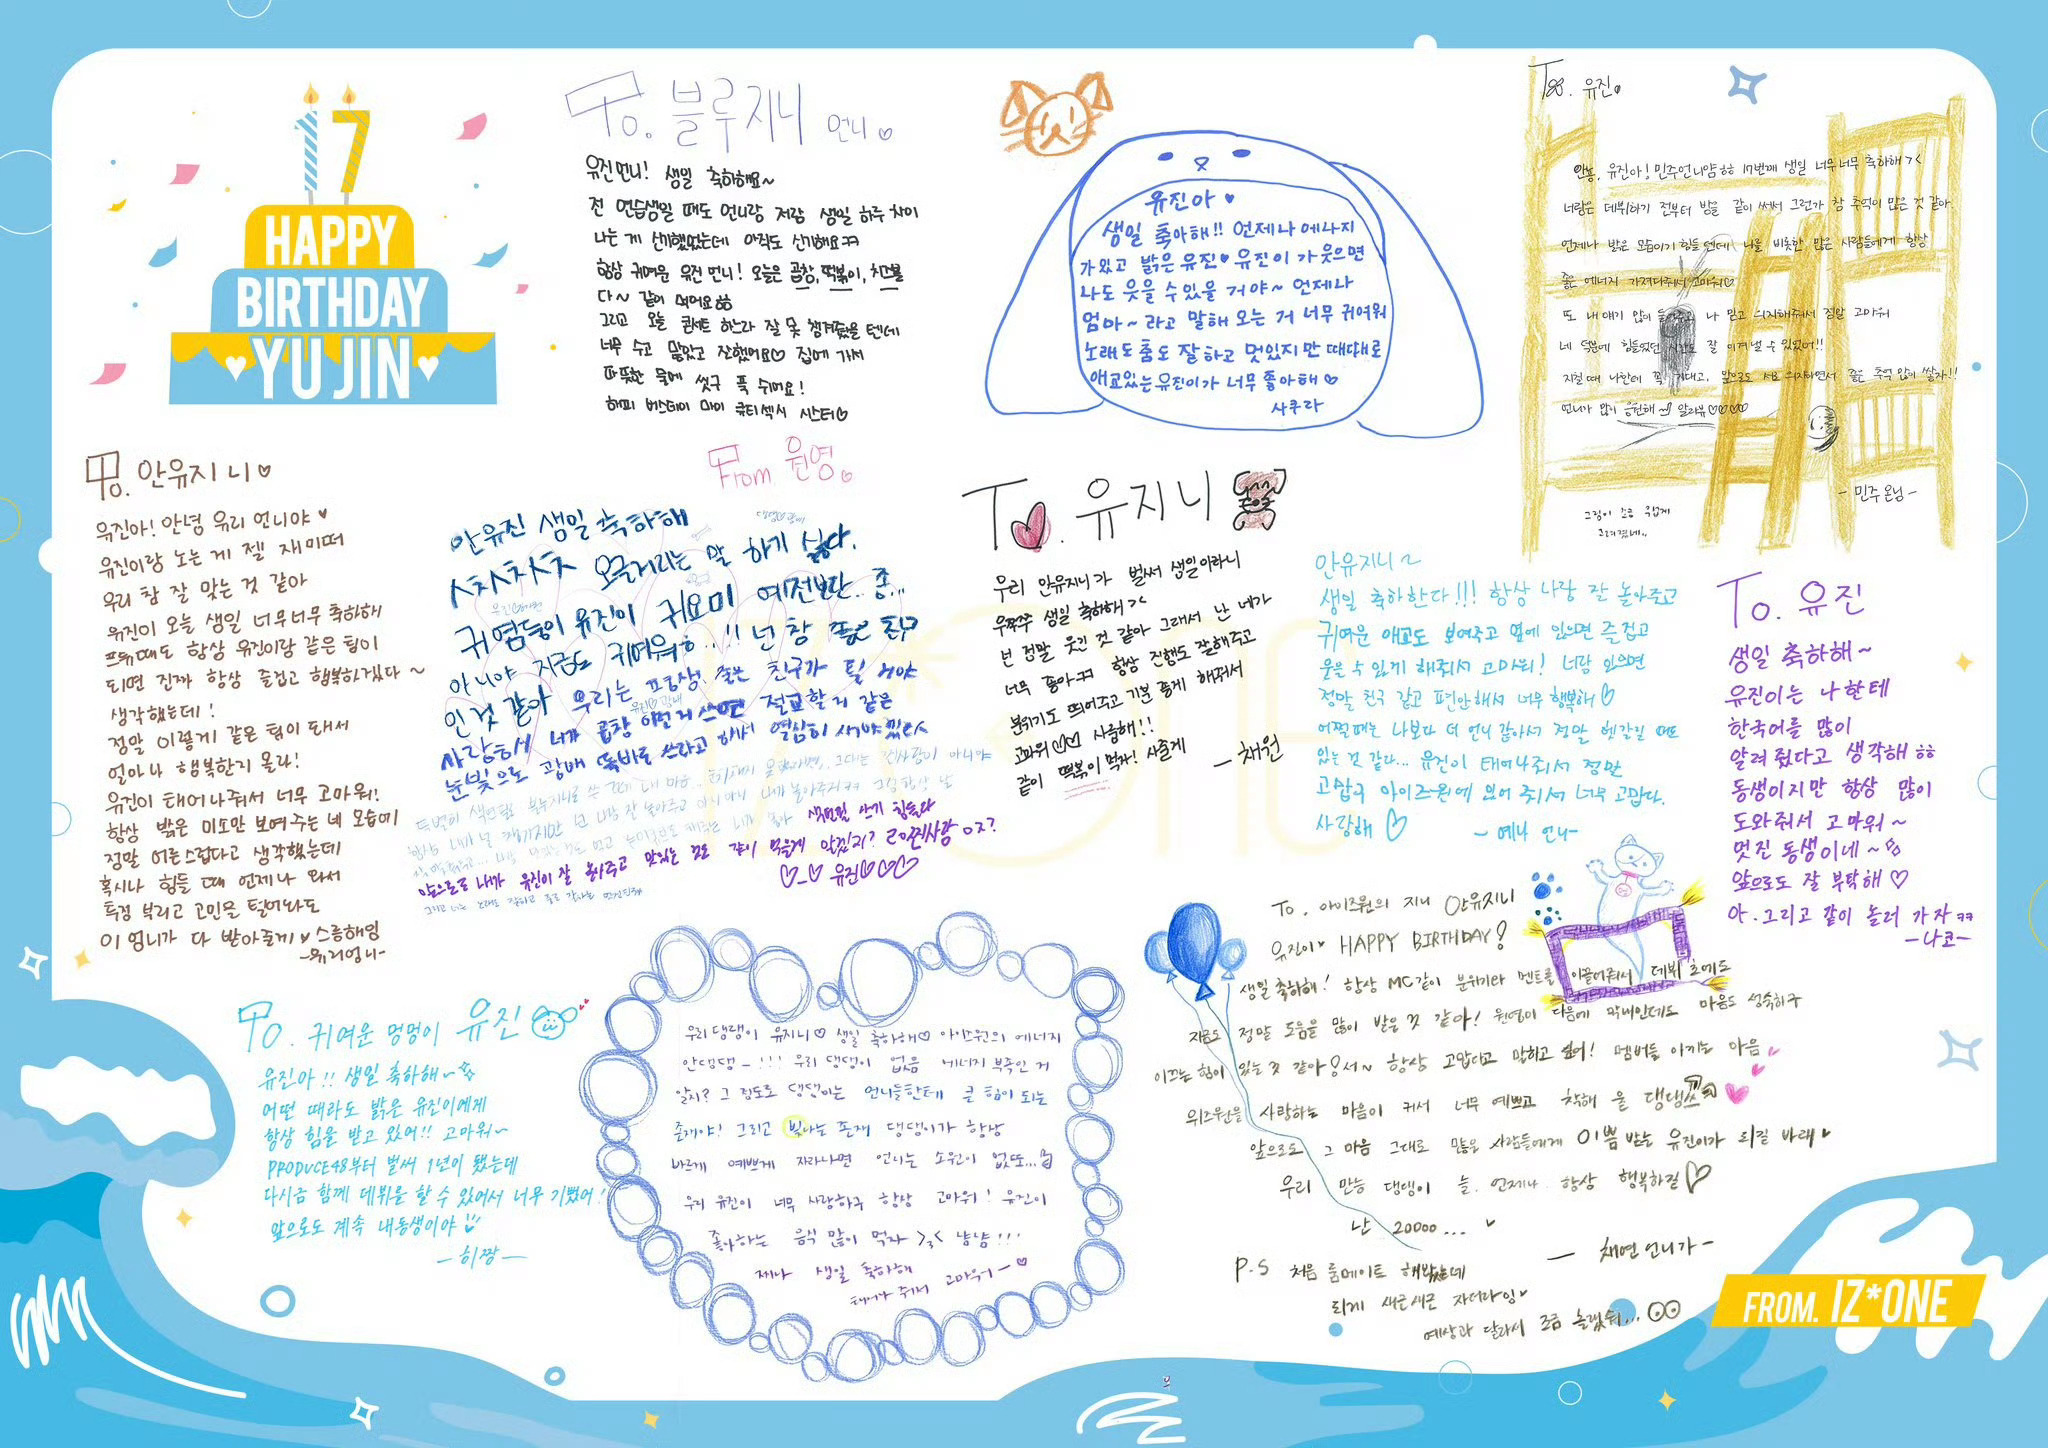 17
HAPPY
BIRTHDAY
YUJIN
To. 블루지니 언니
유진언니! 생일 축하해요~
전 연습생일 때도 언니랑 저랑 생일 하루 차이
나는 게 신기했었는데 아직도 신기해요ㅋㅋ
항상 귀여운 유진 언니! 오늘은 곱창, 떡볶이, 치즈볼
다~ 같이 먹어요ㅎㅎ
그리고 오늘 콘서트 하느라 잘 못 챙겨줬을 텐데
너무 수고 많았고 잘했어요♡ 집에 가서
따뜻한 물에 씻구 푹 쉬어요!
해피 버스데이 마이 큐티섹시 시스터♡
From 원영
유진아♥
생일 축아해!! 언제나 에너지
가있고 밝은 유진♥ 유진이 가웃으면
나도 웃을 수 있을 거야~ 언제나
엄마~ 라고 말해 오는 거 너무 귀여워
노래도 춤도 잘 하고 멋있지만 때때로
애교있는 유진이가 너무 좋아해♡
사쿠라
To. 유진
안뇽, 유진아! 민주언니얌ㅎㅎ 17번째 생일 너무너무 축하해><
너랑은 데뷔하기 전부터 방을 같이 써서 그런가 참 추억이 많은 것 같아.
언제나 밝은 모습이기 힘들 텐데 나를 비롯한 많은 사람들에게 항상
좋은 에너지 가져다줘서 고마워♡
또 내 얘기 많이 들어주고 나 믿고 의지해줘서 정말 고마워
네 덕분에 힘들었던 시간도 잘 이겨낼 수 있었어!!
지칠 때 나한테 꼭 기대고, 앞으로도 서로 의지하면서 좋은 추억 많이 쌓자!!
언니가 많이 응원해 알라뷰♡♡♡♡
- 민주 온님 -
그림이 조금 무섭게
그려졌네..
To. 안유지니♡
유진아! 안녕 유리 언니야♥
유진이랑 노는 게 젤 재미떠
우리 참 잘 맞는 것 같아
유진이 오늘 생일 너무너무 축하해
프듀때도 항상 유진이랑 같은 팀이
되면 진짜 항상 즐겁고 행복하겠다~
생각했는데!
정말 이렇게 같은 팀이 돼서
얼마나 행복한지 몰라!
유진이 태어나줘서 너무 고마워!
항상 밝은 미소만 보여주는 네 모습에
정말 어른스럽다고 생각했는데
혹시나 힘들 때 언제나 와서
투정 부리고 고민을 털어놔도
이 언니가 다 받아줄게♥ 스릉해잉
-유리언니-
안유진 생일 축하해
ㅅ차ㅅ차ㅅ차 오글거리는 말 하기 싫다.
귀염둥이 유진이 귀요미 예전보단.. 좀...
아니야 지금도 귀여워ㅎ..!! 넌 참 좋은 친구
인 것 같아 우리는 평생. 좋은 친구가 될 거야
사랑해서 너가 곱창 이런거 쓰면 절교할 거 같은
눈빛으로 광배 똑바로 쓰라고 해서 열심히 써야 있다
앞으로도 내가 유진이 잘 놀아주고 맛있는 것도 같이 먹을게
♡_♡ 유진♡♡♡
To. 유지니
우리 안유지니가 벌써 생일이라니
우쭈쭈 생일 축하해><
넌 정말 웃긴 것 같아 그래서 난 네가
너무 좋아ㅋㅋ 항상 진행도 잘해주고
분위기도 띄어주고 기분 좋게 해줘서
고마워♡♡ 사릉해!!
같이 떡볶이 먹자! 사줄게
- 채원
안유지니~
생일 축하한다!!! 항상 나랑 잘 놀아주고
귀여운 애교도 보여주고 옆에 있으면 즐겁고
웃을 수 있게 해줘서 고마워! 너랑 있으면
정말 친구 같고 편안해서 너무 행복해♡
어쩔 때는 나보다 더 언니 같아서 정말 헷갈릴 때도
있는 것 같다... 유진이 태어나줘서 정말
고맙구 아이즈원에 있어 줘서 너무 고맙다.
사랑해♡
~ 예나 언니~
To. 유진
생일 축하해~
유진이는 나한테
한국어를 많이
알려줬다고 생각해ㅎㅎ
동생이지만 항상 많이
도와줘서 고마워~
멋진 동생이네~
앞으로도 잘 부탁해♡
아. 그리고 같이 놀러 가자ㅋㅋ
-나코-
To. 귀여운 멍멍이 유진
유진아!! 생일 축하해~
어떤 때라도 밝은 유진이에게
항상 힘을 받고 있어!! 고마워~
PRODUCE48부터 벌써 1년이 됐는데
다시금 함께 데뷔을 할 수 있어서 너무 기뻤어!
앞으로도 계속 내동생이야
-히짱-
우리 댕댕이 유지니♡ 생일 축하해♡ 아이즈원의 에너지
안댕댕~!!! 우리 댕댕이 없음 에너지 부족인 거
알지? 그 정도로 댕댕이는 언니들한테 큰 힘이 되는
존재야! 그리고 빛나는 존재 댕댕이가 항상
바르게 예쁘게 자라나면 언니는 소원이 없또...
우리 유진이 너무 사랑하구 항상 고마워! 유진이
좋아하는 음식 많이 먹자 >3< 냠냠!!!
제나 생일 축하해
태어나 줘서 고마워~♡
To. 아이즈원의 지니 안유지니
유진이♥ HAPPY BIRTHDAY!
생일 축하해! 항상 MC같이 분위기랑 멘트를 이끌어줘서 데뷔 초에도
지금도 정말 도움을 많이 받은 것 같아! 원영이 다음에 막내인데도 마음도 성숙하구
이끄는 힘이 있는 것 같아서~ 항상 고맙다고 말하고 싶어! 멤버들 아끼는 마음
위즈원을 사랑하는 마음이 커서 너무 예쁘고 착해 울 댕댕쓰
앞으로도 그 마음 그대로 많은 사람들에게 이쁨 받는 유진이가 되길 바래♥
우리 만능 댕댕이 늘. 언제나 항상 행복하길♡
난 20000...♥
- 채연 언니가 -
P.S 처음 룸메이트 해봤는데
되게 새근새근 자더라잉♥
예상과 달라서 조금 놀랬숴...
FROM. IZ*ONE